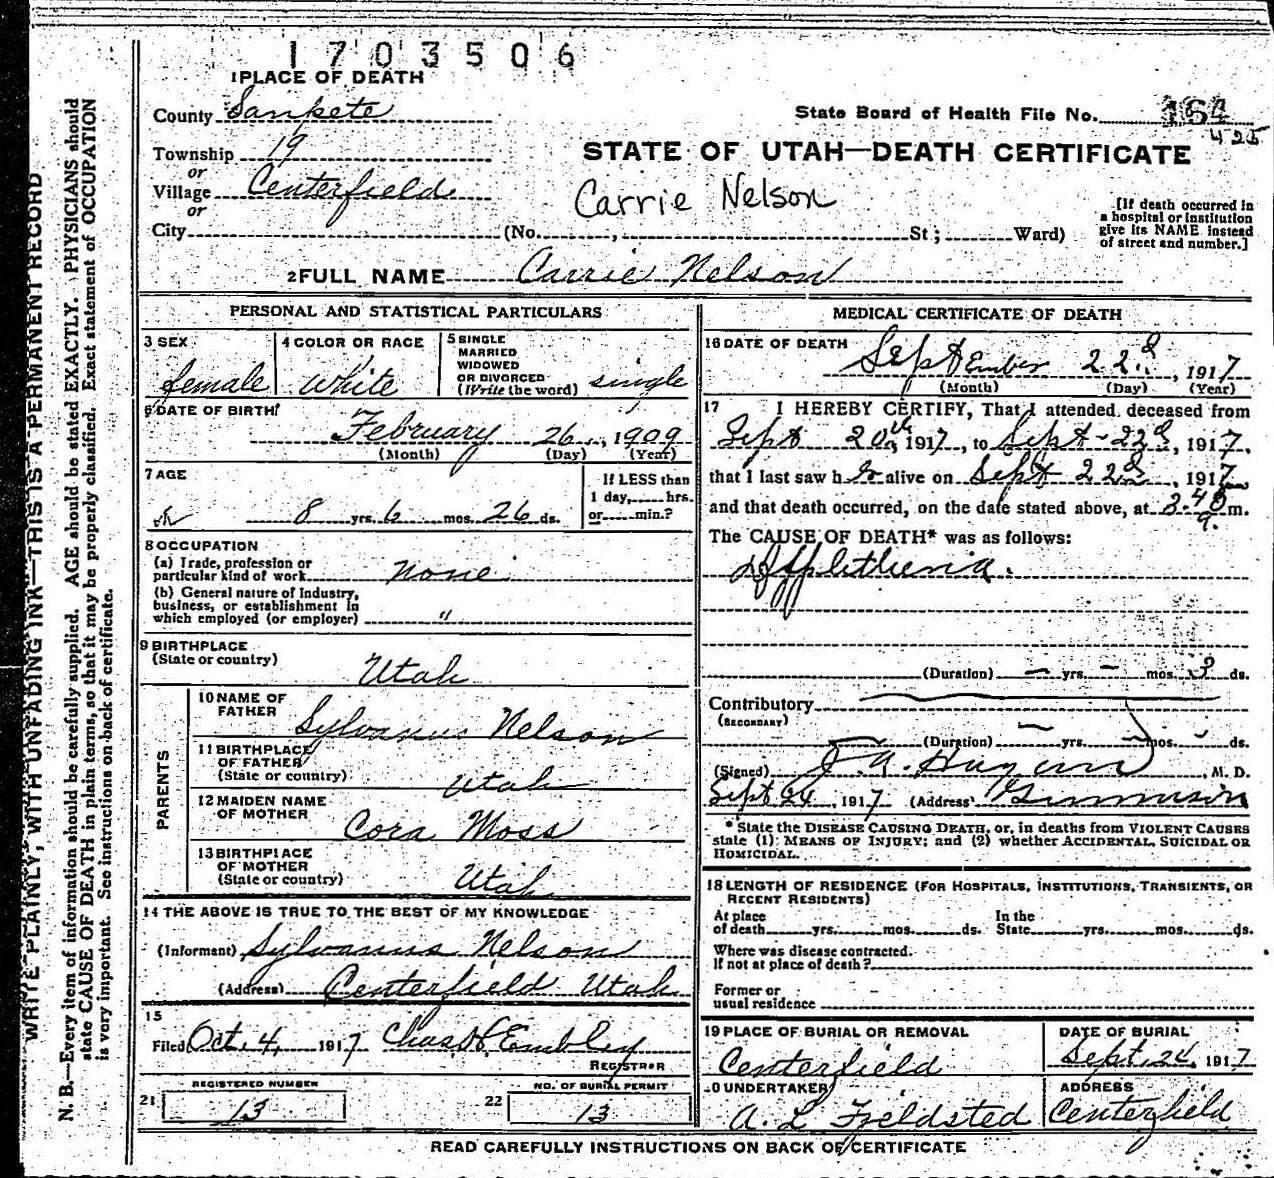 1703506
1 PLACE OF DEATH
County Sanpete
State Board of Health File No. 164
425
Township 19
or
STATE OF UTAH—DEATH CERTIFICATE
Village Centerfield
or
Carrie Nelson
City (No. , St; Ward)
[If death occurred in
a hospital or institution
give its NAME instead
of street and number.]
2 FULL NAME Carrie Nelson
PERSONAL AND STATISTICAL PARTICULARS
3 SEX
female
4 COLOR OR RACE
White
5 SINGLE
MARRIED
WIDOWED
OR DIVORCED
(Write the word) single
6 DATE OF BIRTH
February 26, 1909
(Month) (Day) (Year)
7 AGE
8 yrs. 6 mos. 26 ds.
If LESS than
1 day, hrs.
or min.?
8 OCCUPATION
(a) Trade, profession or
particular kind of work None
(b) General nature of Industry,
business, or establishment in
which employed (or employer) "
9 BIRTHPLACE
(State or country)
Utah
PARENTS
10 NAME OF
FATHER Sylvanus Nelson
11 BIRTHPLACE
OF FATHER
(State or country) Utah
12 MAIDEN NAME
OF MOTHER Cora Moss
13 BIRTHPLACE
OF MOTHER
(State or country) Utah
14 THE ABOVE IS TRUE TO THE BEST OF MY KNOWLEDGE
(Informant) Sylvanus Nelson
(Address) Centerfield Utah
15
Filed Oct. 4, 1917 Chas. H. Embley
REGISTRAR
21 REGISTERED NUMBER
13
22 NO. OF BURIAL PERMIT
13
MEDICAL CERTIFICATE OF DEATH
16 DATE OF DEATH
September 22d, 1917
(Month) (Day) (Year)
17 I HEREBY CERTIFY, That I attended deceased from
Sept 20th, 1917, to Sept-22d, 1917,
that I last saw her alive on Sept 22d, 1917
and that death occurred, on the date stated above, at 3-45 a. m.
The CAUSE OF DEATH* was as follows:
Diphtheria.
(Duration) — yrs. — mos. 3 ds.
Contributory
(SECONDARY)
(Duration) — yrs. — mos. - ds.
(Signed) J. A. Hagan, M. D.
Sept 24, 1917 (Address) Gunnison
* State the DISEASE CAUSING DEATH, or, in deaths from VIOLENT CAUSES
state (1) MEANS OF INJURY; and (2) whether ACCIDENTAL, SUICIDAL OR
HOMICIDAL.
18 LENGTH OF RESIDENCE (FOR HOSPITALS, INSTITUTIONS, TRANSIENTS, OR
RECENT RESIDENTS)
At place In the
of death yrs. mos. ds. State yrs. mos. ds.
Where was disease contracted.
If not at place of death?
Former or
usual residence
19 PLACE OF BURIAL OR REMOVAL
Centerfield
DATE OF BURIAL
Sept. 24, 1917
20 UNDERTAKER
A. L. Fjeldsted
ADDRESS
Centerfield
READ CAREFULLY INSTRUCTIONS ON BACK OF CERTIFICATE
WRITE PLAINLY, WITH UNFADING INK—THIS IS A PERMANENT RECORD
N. B.—Every item of information should be carefully supplied. AGE should be stated EXACTLY. PHYSICIANS should
state CAUSE OF DEATH in plain terms, so that it may be properly classified. Exact statement of OCCUPATION
is very important. See instructions on back of certificate.